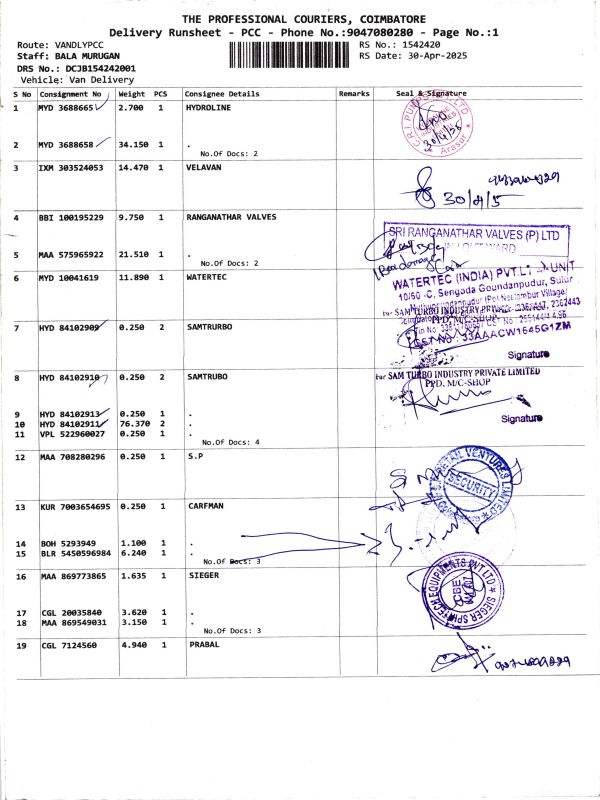 THE PROFESSIONAL COURIERS, COIMBATORE
Delivery Runsheet - PCC - Phone No.:9047080280 - Page No.:1
Route: VANDLYPCC RS No.: 1542420
Staff: BALA MURUGAN RS Date: 30-Apr-2025
DRS No.: DCJB154242001
Vehicle: Van Delivery
S No Consignment No Weight PCS Consignee Details Remarks Seal & Signature
1 MYD 3688665 2.700 1 HYDROLINE
30/4/25
Arasur
2 MYD 3688658 34.150 1 .
No.Of Docs: 2
3 IXM 303524053 14.470 1 VELAVAN
30/4/5
4 BBI 100195229 9.750 1 RANGANATHAR VALVES
SRI RANGANATHAR VALVES (P) LTD
5 MAA 575965922 21.510 1 .
No.Of Docs: 2
6 MYD 10041619 11.890 1 WATERTEC
WATERTEC (INDIA) PVT.LTD UNIT
10/60 -C, Sengoda Goundanpudur, Sulur
7 HYD 84102909 0.250 2 SAMTRURBO
for SAM TURBO INDUSTRY PRIVATE
PPD. M/C-SHOP
33AAACW1645G1ZM
Signature
8 HYD 84102910 0.250 2 SAMTRUBO
for SAM TURBO INDUSTRY PRIVATE LIMITED
PPD. M/C-SHOP
Signature
9 HYD 84102913 0.250 1 .
10 HYD 84102911 76.370 2 .
11 VPL 522960027 0.250 1 .
No.Of Docs: 4
12 MAA 708280296 0.250 1 S.P
RETAIL VENTURES LIMITED
SECURITY
13 KUR 7003654695 0.250 1 CARFMAN
14 BOH 5293949 1.100 1 .
15 BLR 5450596984 6.240 1 .
No.Of Docs: 3
16 MAA 869773865 1.635 1 SIEGER
SIEGER SPINTECH EQUIPMENTS PVT LTD
CBE
17 CGL 20035840 3.620 1 .
18 MAA 869549031 3.150 1 .
No.Of Docs: 3
19 CGL 7124560 4.940 1 PRABAL